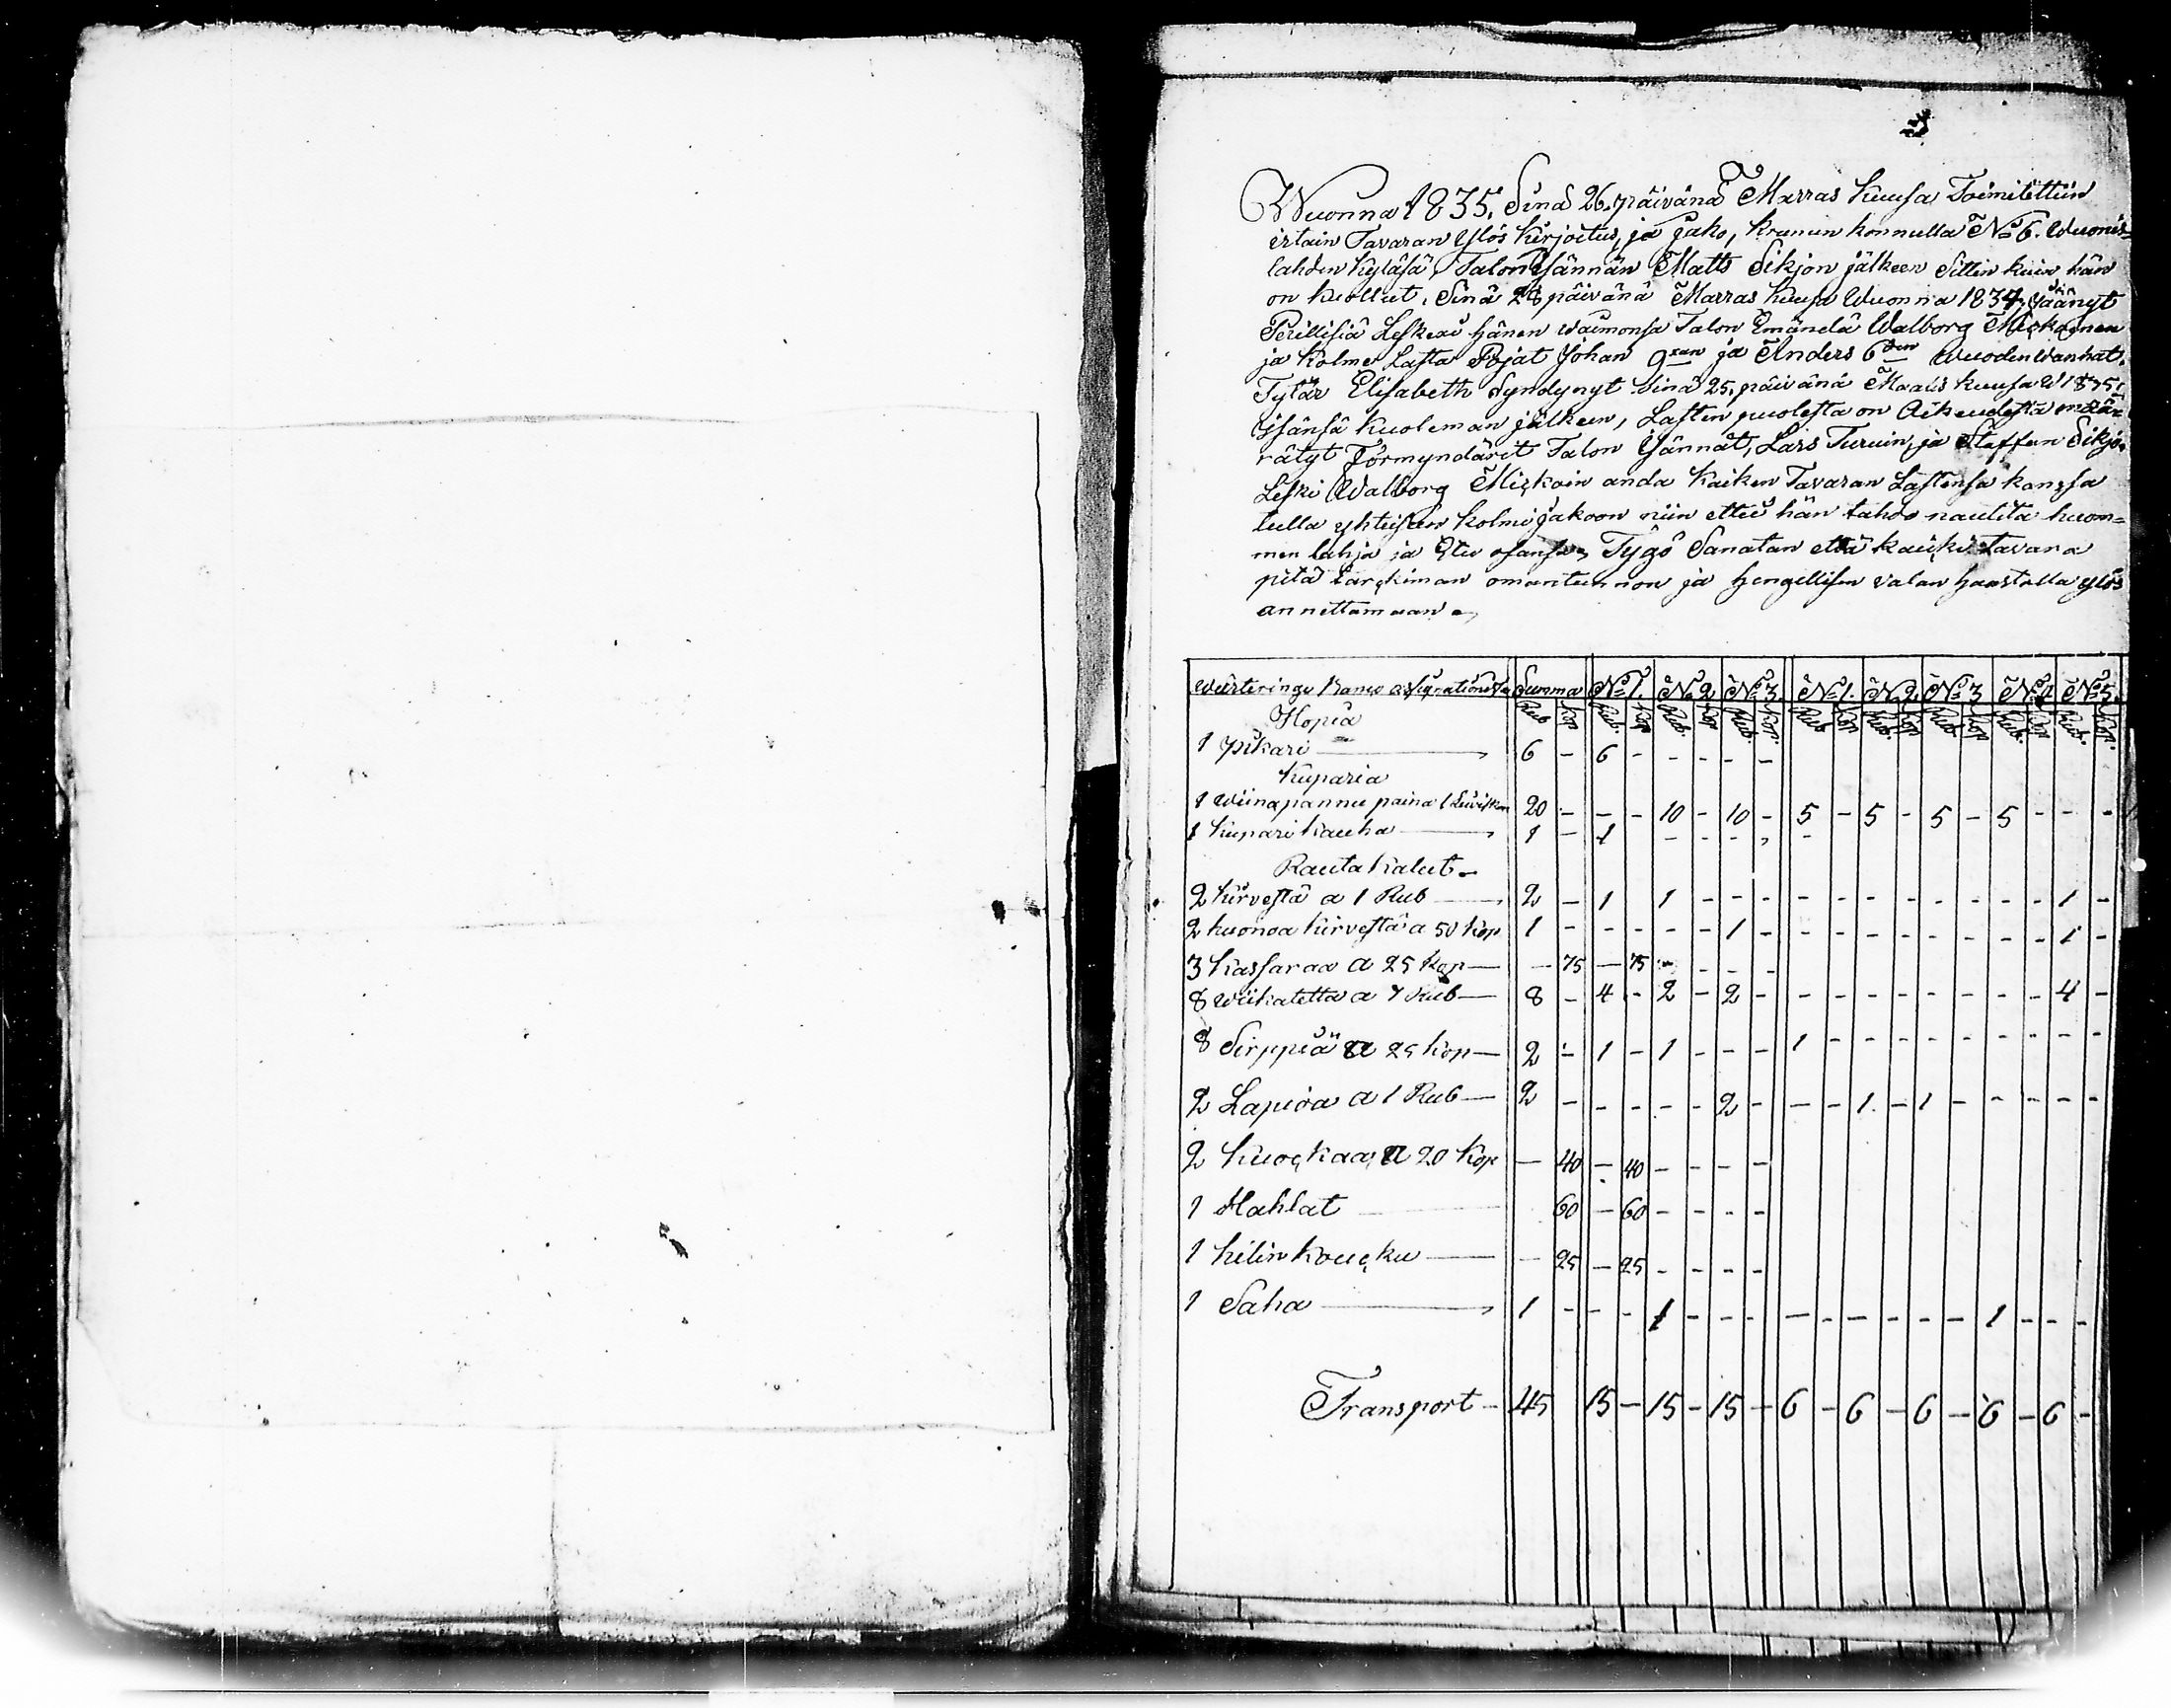 Wuonna 1835. Sinä 26. päivänä Marras kuusa Toimitettiin
irtain Tavaran Ylös kirjoitus, ja jako, krunun konnulla No 6. Wuonis=
lahden kyläsä, Talon Isännän Matts Sikjon jälkeen Sitten kuin hän
on kuollut. Sinä 28 päivänä Marras kuusa Wuonna 1834, Jäänyt
Perillisiä Leskexi hänen waimonsa Talon Emändä Walborg
ja kolme Lasta Pojat Johan 9xan ja Anders 6den wuoden wanhat.
Tytär Elisabeth Syndynyt Sinä 25. päivänä Maalis kuusa W 1835.
Isänsä kuoleman jälkeen, Lasten puolesta on Oikeudesta määr=
rätyt Förmyndärit Talon Isännät, Lars Turuin, ja Staffan Sikjo.
Leski Walborg Mickoin anda kaiken Tavaran Lastensa kanssa
tulla yhteisen kolmijakoon niin ettei hän tahdo nautita huom=
men lahja ja Etu osansa, Tygö Sanatan että kaicki tavara
pitä tarckiman omantunnon ja hengellisen valan haastolla ylös
annettamaan.
Wärteringi Banco assignationissa Summa No 1. No 2 No 3. No 1. No 2. No 3 No 4 No 5.
Hopia Rub Kop Rub. Kop Rub. Kop Rub. Kop. Rub Kop Rub. Kop Rub. Kop Rub. Kop Rub. Kop.
1 pikari — 6 - 6 - - - - -
Kuparia
1 Wiinapannu paina 1 Leiviskän 20 - - - 10 - 10 - 5 - 5 - 5 - 5 - - -
1 kupari kauha — 1 - 1 - - - - -
Rauta kalut.
2 kirvestä a 1 Rub — 2 - 1 1 - - - - - - - - - - - 1 -
2 huonoa kirvestä a 50 kop 1 - - - - - 1 - - - - - - - - - 1 -
3 kassaraa a 25 kop — - 75 - 75 - - - -
8 wiikatetta a 1 Rub — 8 - 4 - 2 - 2 - - - - - - - - - 4 -
8 Sirppiä a 25 kop — 2 - 1 - 1 - - - 1 - - - - - - - - -
2 Lapioa a 1 Rub — 2 - - - - - 2 - - - 1 - 1 - - - - -
2 kuockaa a 20 kop — 40 - 40 - - - -
1 Hahlat 60 - 60 - - - -
1 hilin koucku — - 25 - 25 - - - -
1 Saha — 1 - - - 1 - - - - - - - - - 1 - - -
Transport - 45 15 - 15 - 15 - 6 - 6 - 6 - 6 - 6 -